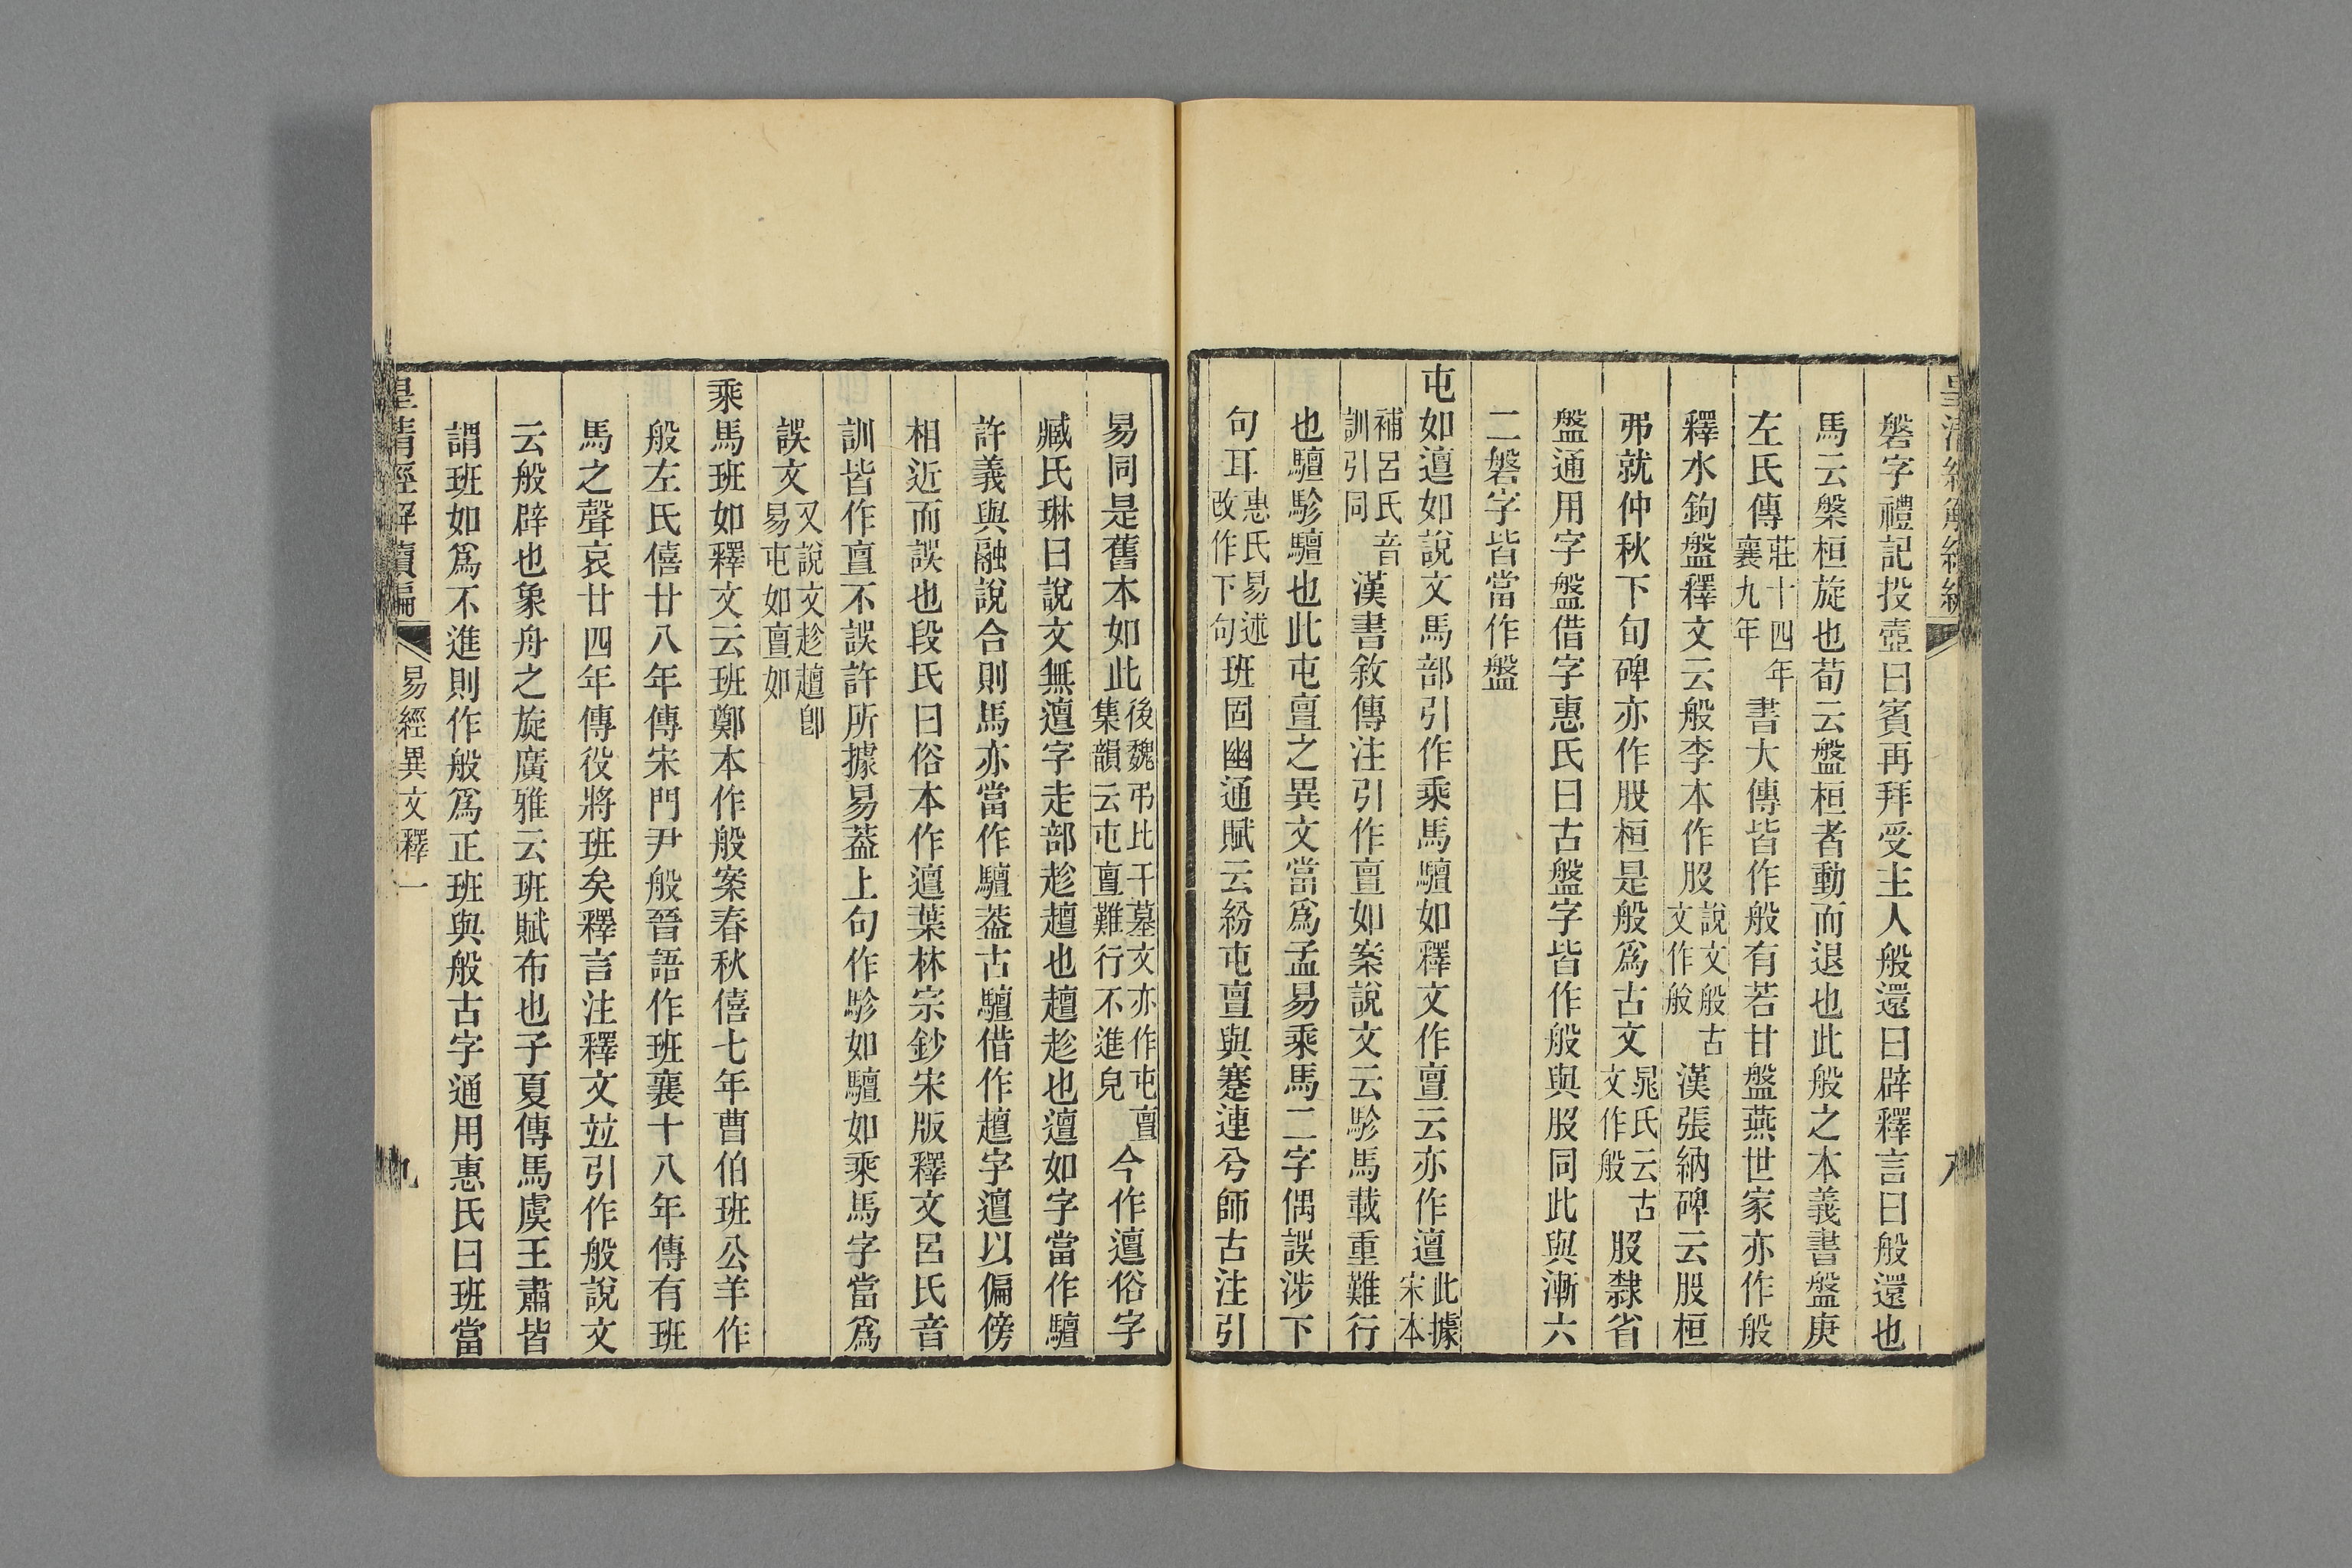 磐字禮記投壺曰賓再拜受主人般還曰辟釋言曰般還也
馬云槃桓旋也荀云盤桓者動而退也此般之本義書盤庚
左氏傳莊十四年襄九年書大傳皆作般有若甘盤燕世家亦作般
釋水鉤盤釋文云般李本作股說文般古文作㪵漢張納碑云股桓
弗就仲秋下旬碑亦作股桓是般爲古文晁氏云古文作般股隸省
盤通用字盤借字惠氏曰古盤字皆作般與股同此與漸六
二磐字皆當作盤
屯如邅如說文馬部引作乘馬驙如釋文作亶云亦作邅此據宋本
補呂氏音訓引同漢書敘傳注引作亶如案說文云駗馬載重難行
也驙駗驙也此屯亶之異文當爲孟易乘馬二字偶誤涉下
句耳惠氏易述改作下句班固幽通賦云紛屯亶與蹇連兮師古注引
易同是舊本如此後魏弔比干墓文亦作屯亶集韻云屯亶難行不進皃今作邅俗字
臧氏琳曰說文無邅字走部趁䟢也䟢趁也邅如字當作驙
許義與融說合則馬亦當作驙葢古驙借作䟢字邅以偏傍
相近而誤也段氏曰俗本作邅葉林宗鈔宋版釋文呂氏音
訓皆作亶不誤許所據易葢上句作駗如驙如乘馬字當爲
誤文又說文趁䟢卽易屯如亶如
乘馬班如釋文云班鄭本作般案春秋僖七年曹伯班公羊作
般左氏僖廿八年傳宋門尹般晉語作班襄十八年傳有班
馬之聲哀廿四年傳役將班矣釋言注釋文竝引作般說文
云般辟也象舟之旋廣雅云班賦布也子夏傳馬虞王肅皆
謂班如爲不進則作般爲正班與般古字通用惠氏曰班當
皇清經解續編 易經異文釋一 九